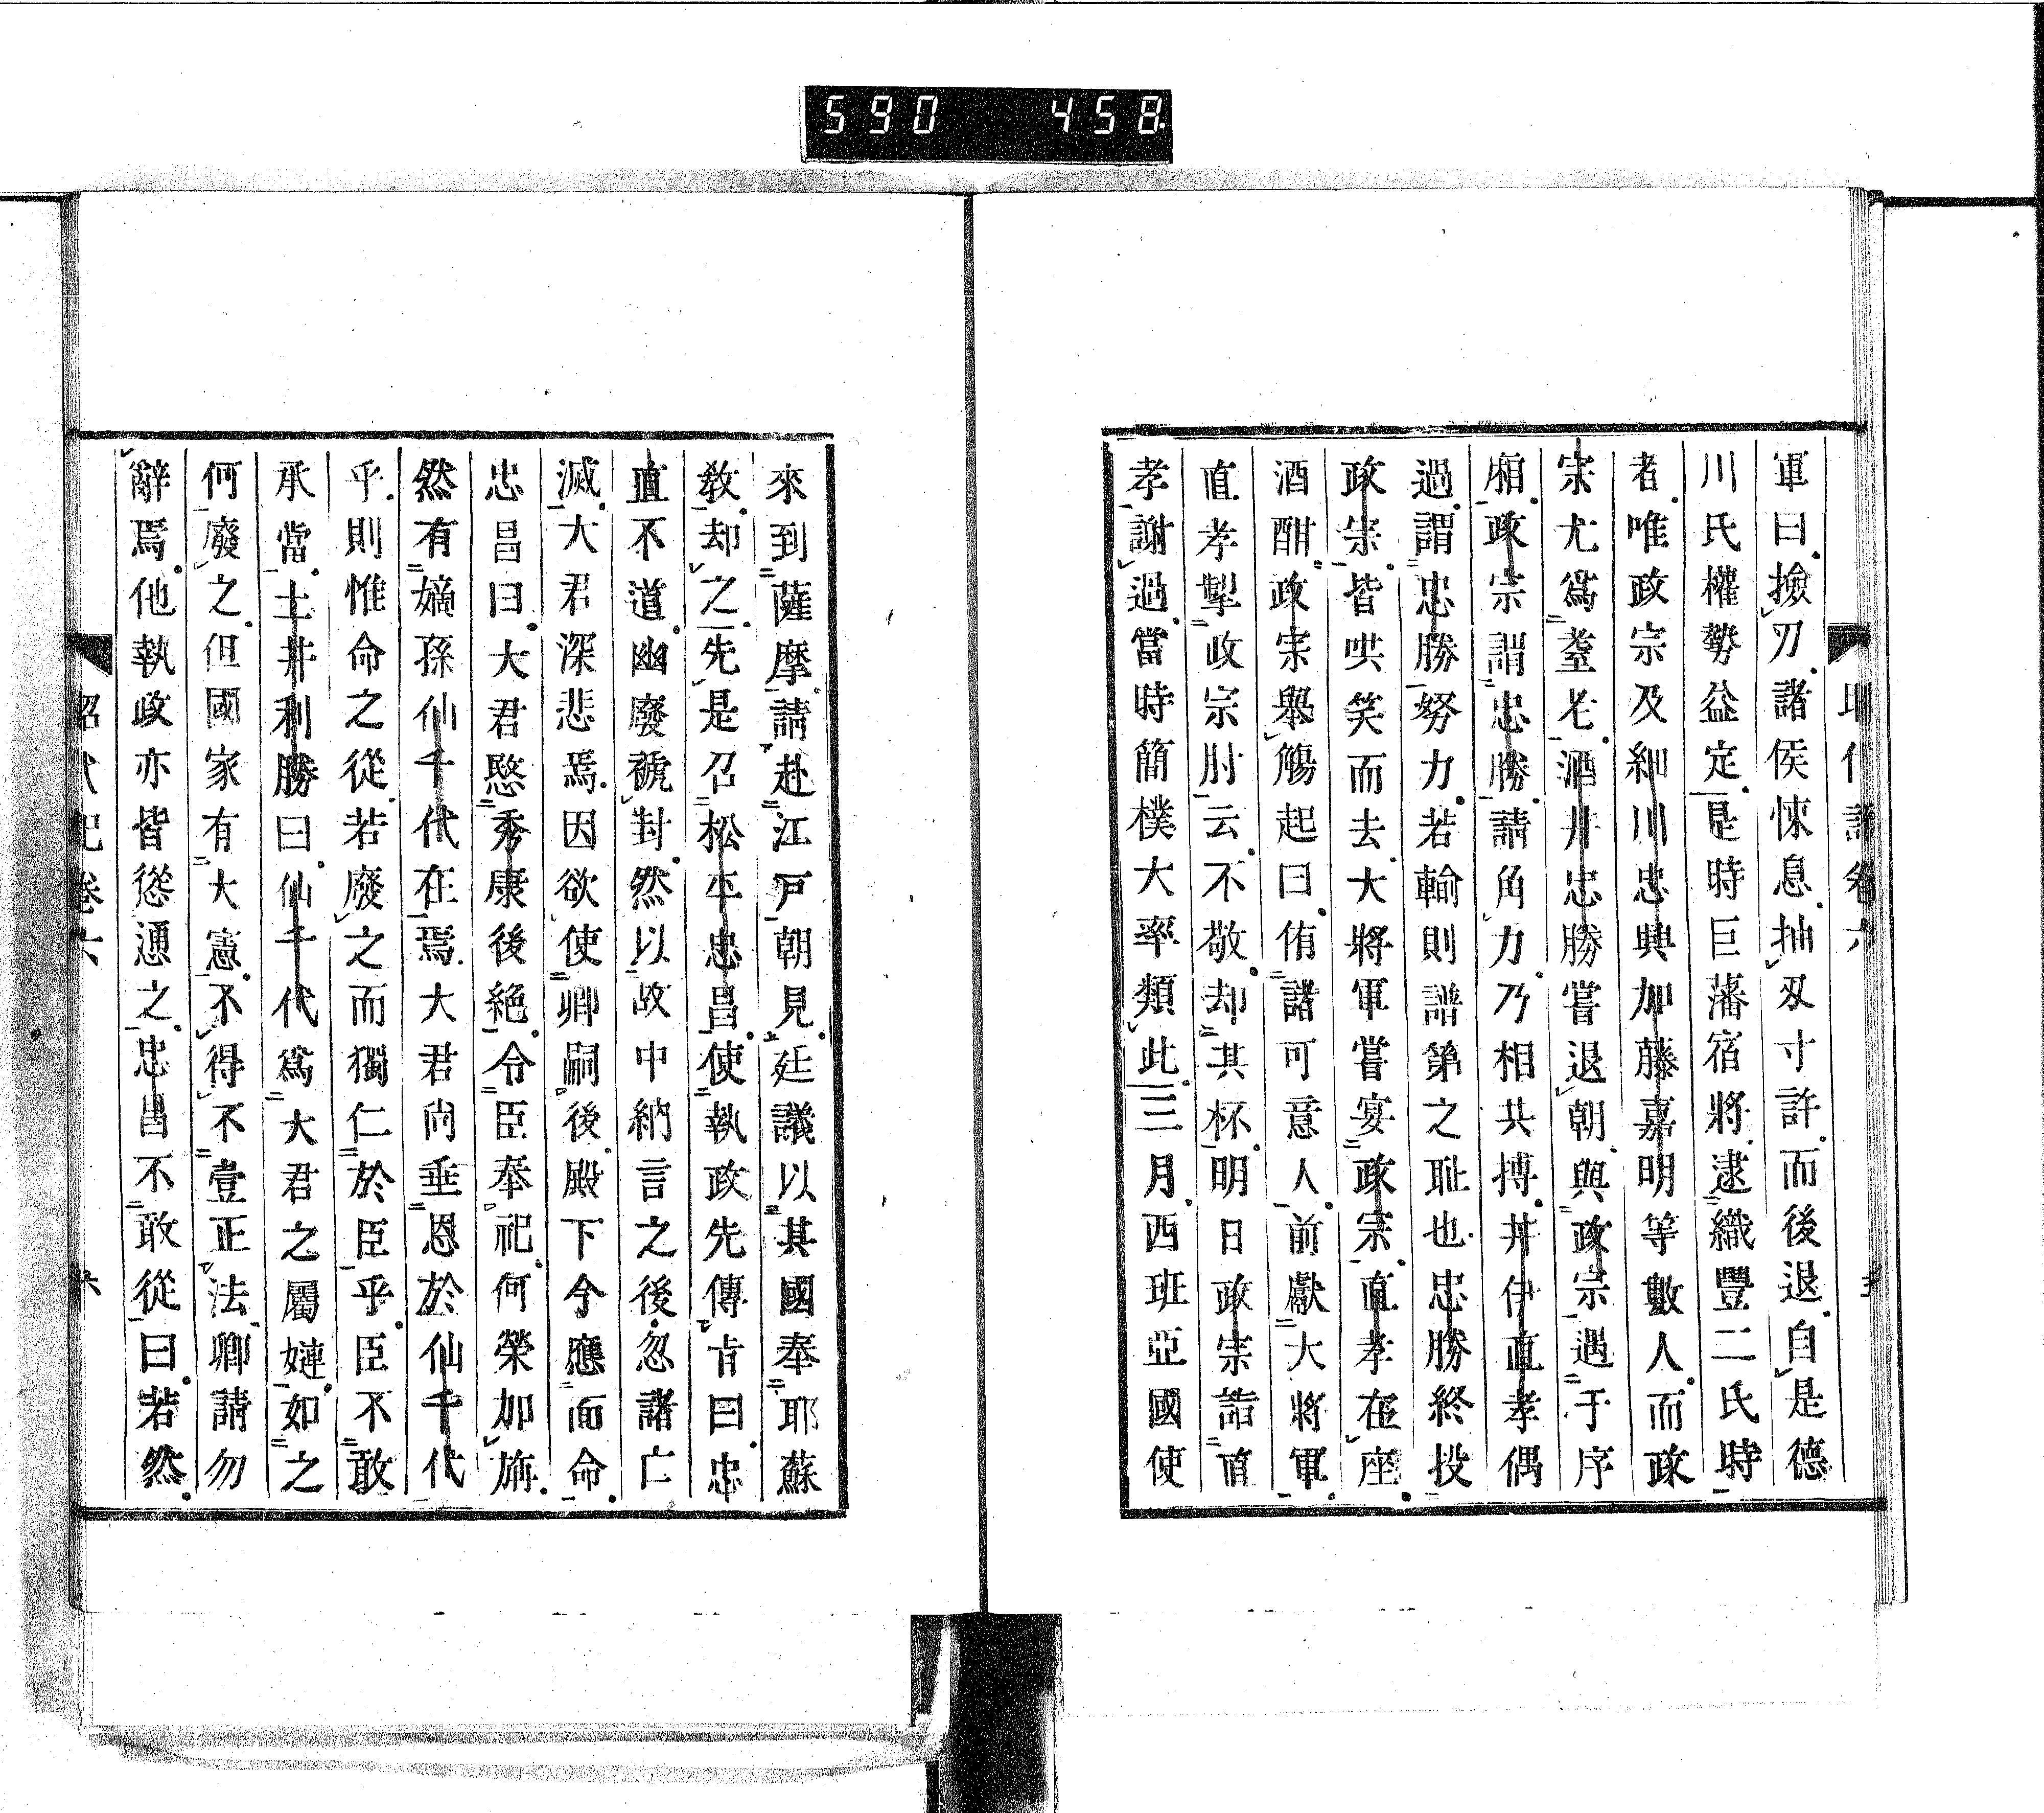 590 458
軍曰撿刃諸侯悚息抽刄寸許而後退自是德
川氏權勢益定是時巨藩宿將逮織豐二氏時
者唯政宗及細川忠興加藤嘉明等數人而政
宗尤爲耋老酒井忠勝嘗退朝與政宗遇于序
廂政宗謂忠勝請角力乃相共搏井伊直孝偶
過謂忠勝努力若輸則譜第之耻也忠勝終投
政宗皆哄笑而去大將軍嘗宴政宗直孝在座
酒酣政宗舉觴起曰侑諸可意人前獻大將軍
直孝掣政宗肘云不敬却其杯明日政宗詣直
孝謝過當時簡樸大率類此三月西班亞國使
來到薩摩請赴江戸朝見廷議以其國奉耶蘇
敎却之先是召松平忠昌使執政先傳旨曰忠
直不道幽廢褫封然以故中納言之後忽諸亡
滅大君深悲焉因欲使卿嗣後殿下今應面命
忠昌曰大君愍秀康後絕令臣奉祀何榮加旃
然有嫡孫仙千代在焉大君尚垂恩於仙千代
乎則惟命之從若廢之而獨仁於臣乎臣不敢
承當土井利勝曰仙千代爲大君之屬㜻如之
何廢之但國家有大憲不得不壹正法卿請勿
辭焉他執政亦皆慫慂之忠昌不敢從曰若然
卷六